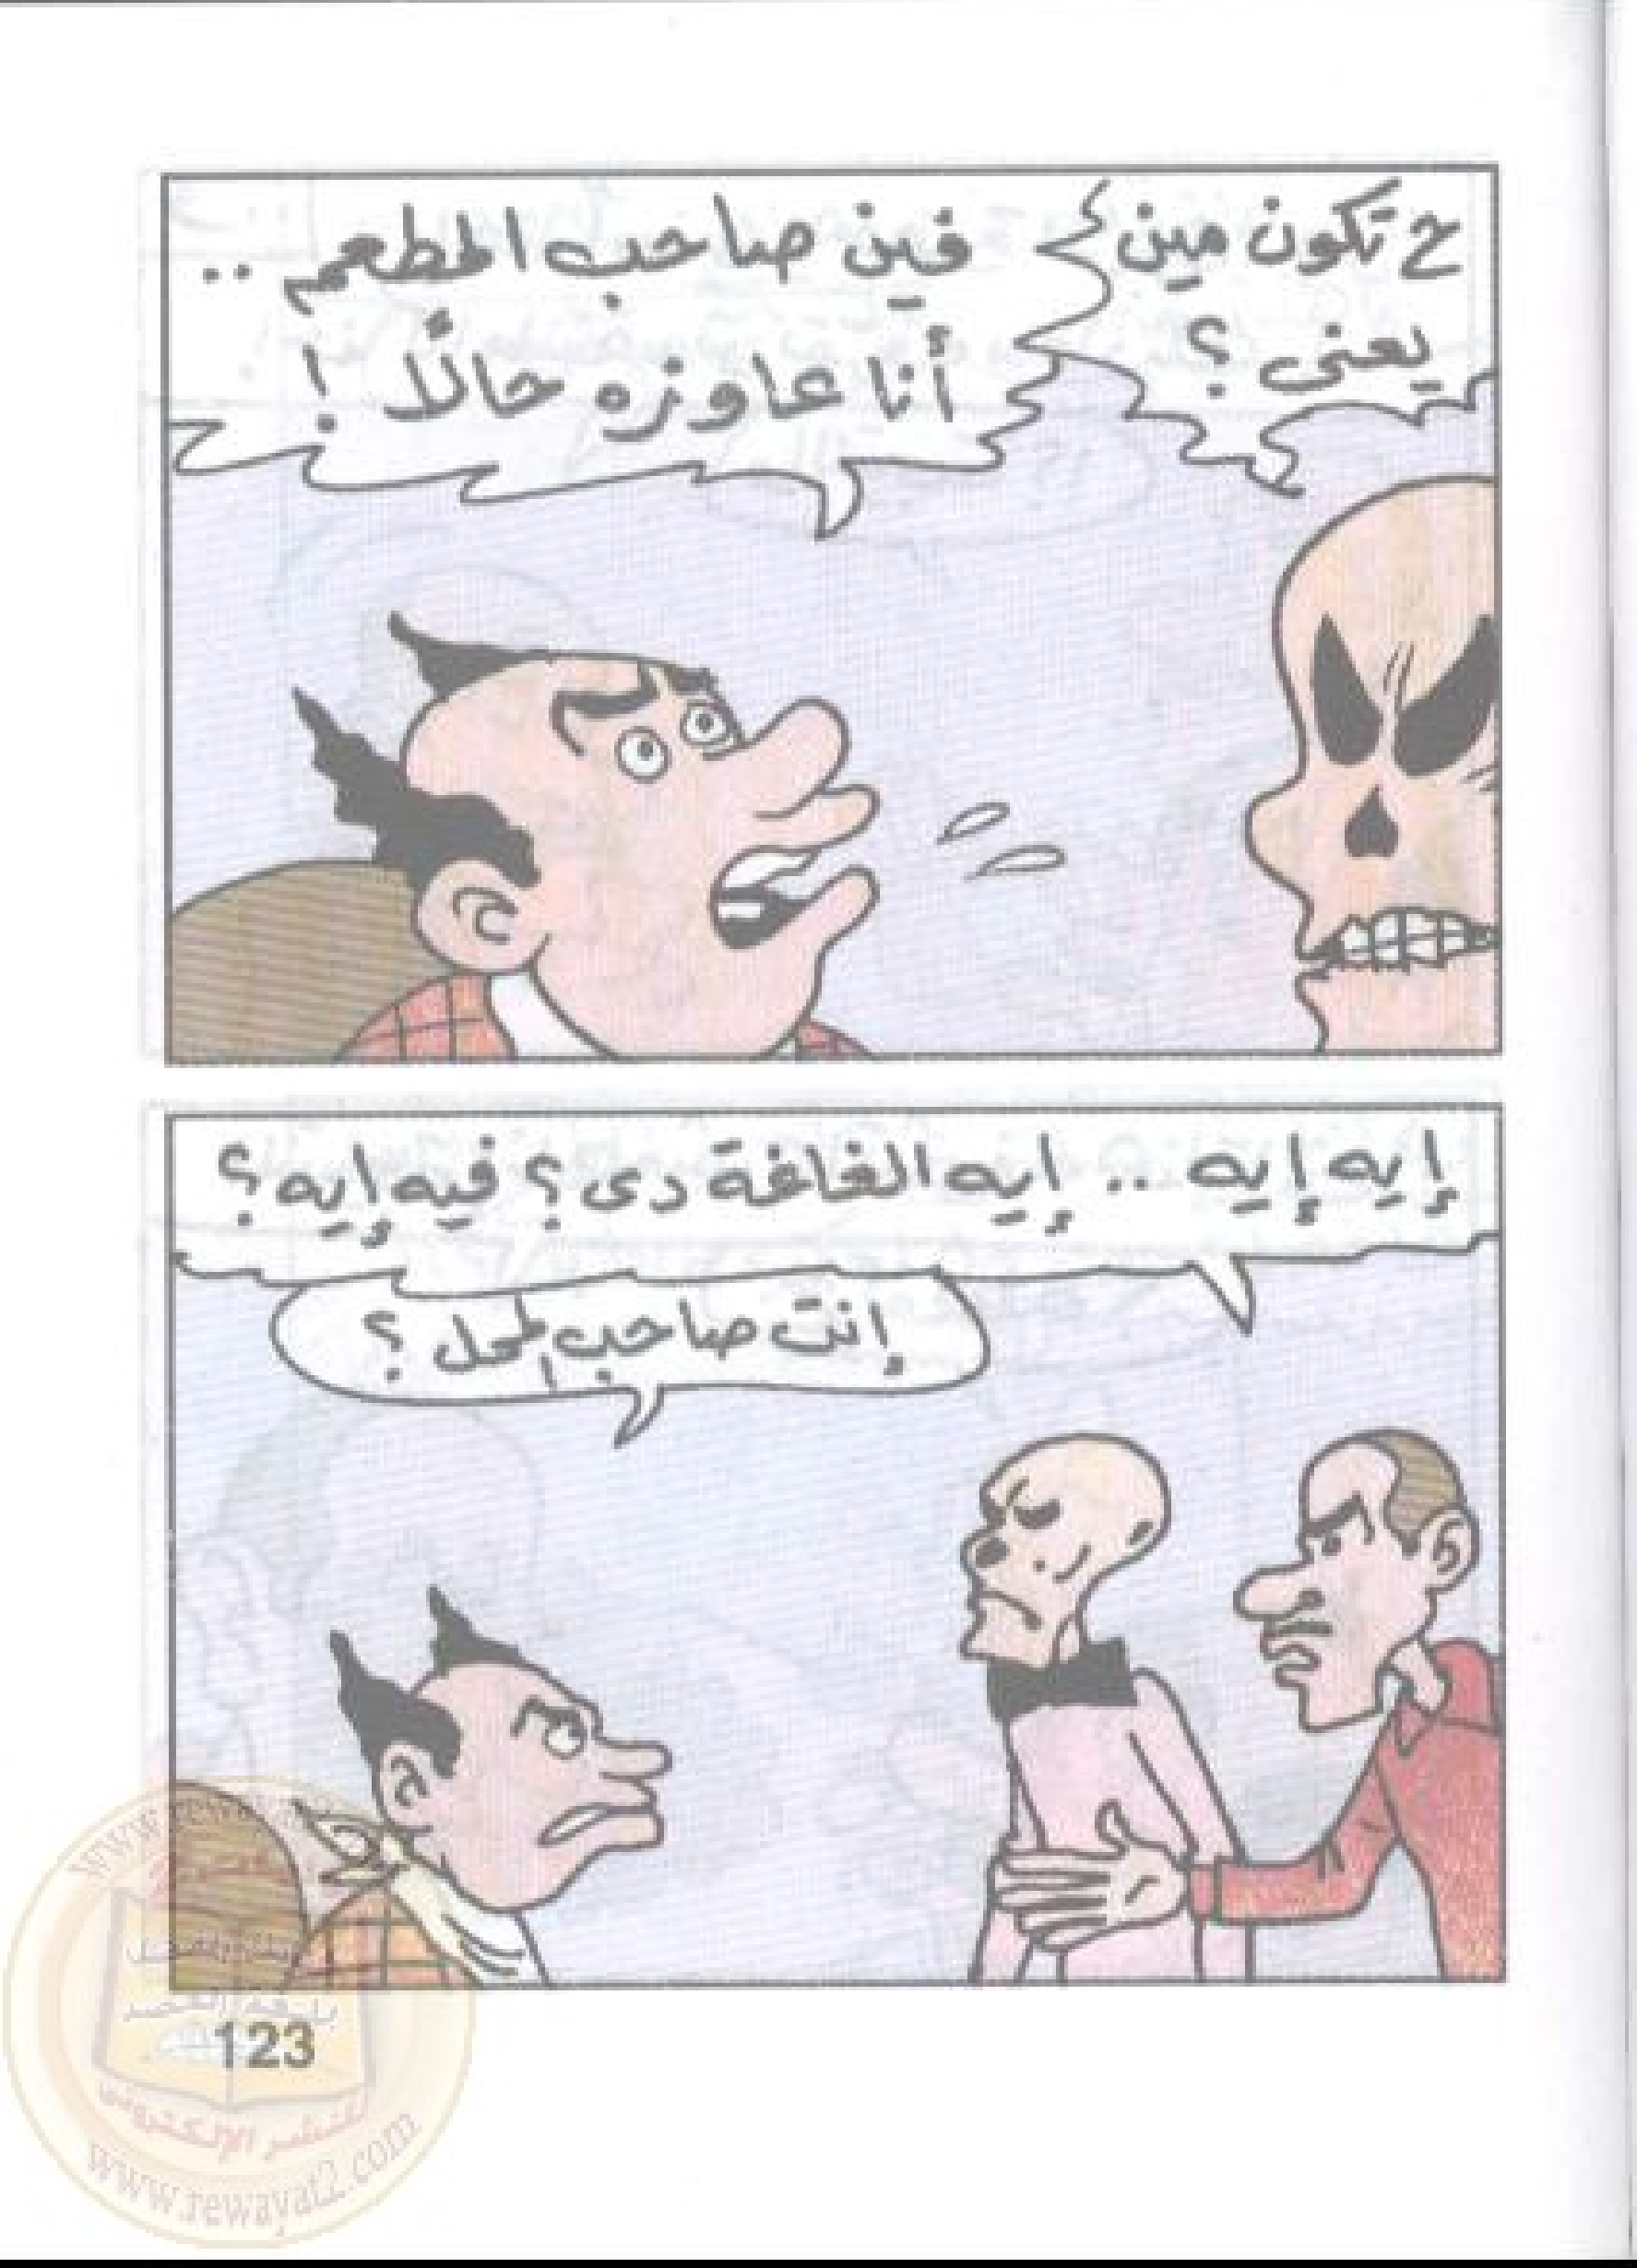 ح تكون مين
يعنى ؟
فين صاحب المطعم ..
أنا عاوزه حالًا !
إيه إيه .. إيه الغاغة دى ؟ فيه إيه ؟
إنت صاحب المحل ؟
123
للنشر الإلكترونى
www.rewayat2.com